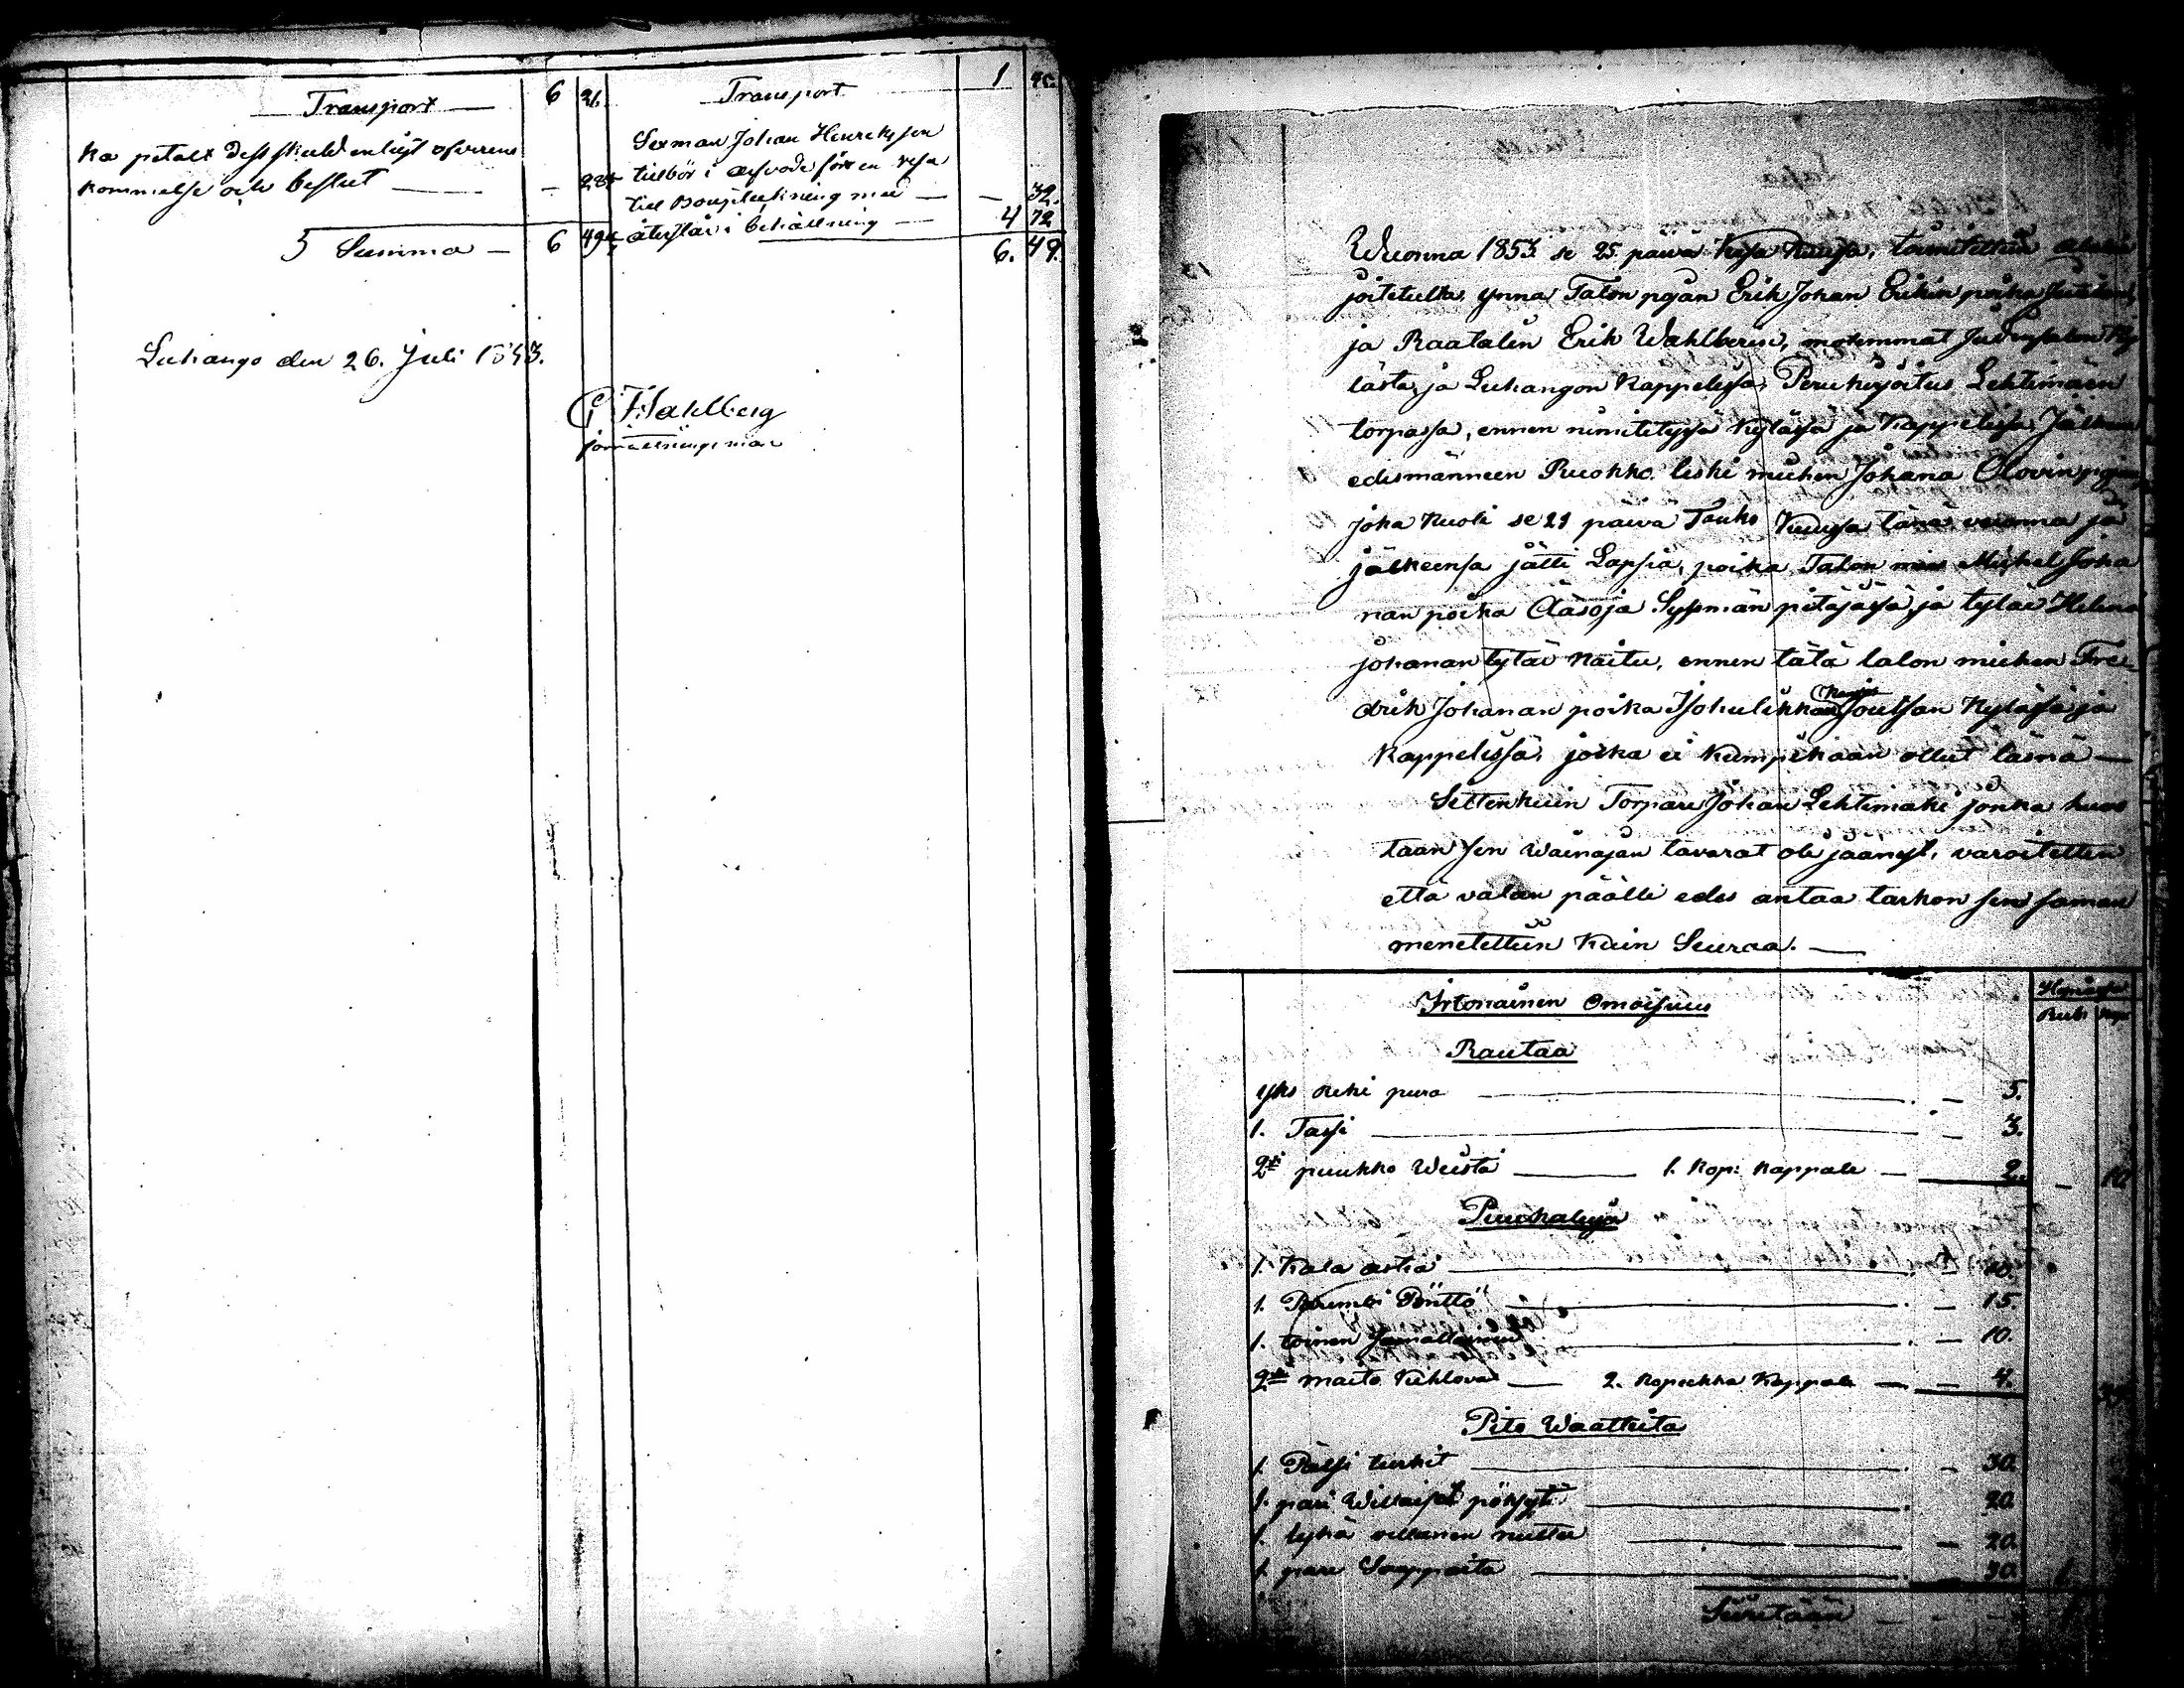 Transport 6 21.
ka petalt dess skuld enligt öfverens
kommelse och beslut — — 28 4/7
S Summa — 6 49 4/7
Transport 1 45.
Sexman Johan Henriksson
tillkör i arfvode för en resa
till Bouptekning med — — 32.
återstår i behållning — 4 72
6. 49.
Luhango den 26. Juli 1853.
E Wahlberg
förrättningsman
Wuonna 1853 se 25 päivä Kesä Kuusa, toimitettiin
joitetulta ynnä Talon pojan Erik Johan Erikin poika
ja Raatalin Erik Wahlberin, molemmat Ky
lästä, ja Luhangon Kappelissa, Perukirjoitus Lehtimäen
torpassa, ennen nimitetyssä Kylässä ja Kappelissa, Jälkeen
edesmänneen Ruokko leski miehen Johana Olovinpojan,
joka Kuoli se 29 päivä Touko Kuusa tänä vuonna ja
jälkeensä jätti Lapsia, poika Talon mies Mickel Joha
nan poika Ääsoja Sysmän pitäjässä, ja tytär Helena
johanan tytär Naitu, ennen tätä talon miehen Fre-
drik Johanan poika Joutsan Kylässä ja
Kappelissa, jotka ei Kumpikaan ollut läsnä —
Settenkuin Torpari Johan Lehtimäki jonka huos
taan sen Wainajan tavarat oli jäänyt, varoitettiin
että valan päälle edes antaa tarkon sen saman
menetettiin Kuin Seuraa. —
Irtonainen Omaisuus
Rub: Kop
Rautaa
yks reki pura — 5.
1. Tassi — 3.
2ksi puukko Weistä — 1. Kop: Kappale — 2. — 10
Puukaluja
1. Kala astia — 10.
1. Pönttö — 15.
1. toinen samallainen — 10.
2ksi maito Kiehlova — 2. Kopeekka Kappale — 4.
Pito Waatteita
1. Pälsi turkit — 30.
1. pari Willaisat pöksyt — 20.
1. lyhä villanen nuttu — 20.
1. pari Saappaita — 30. 1
Siiretään — 1